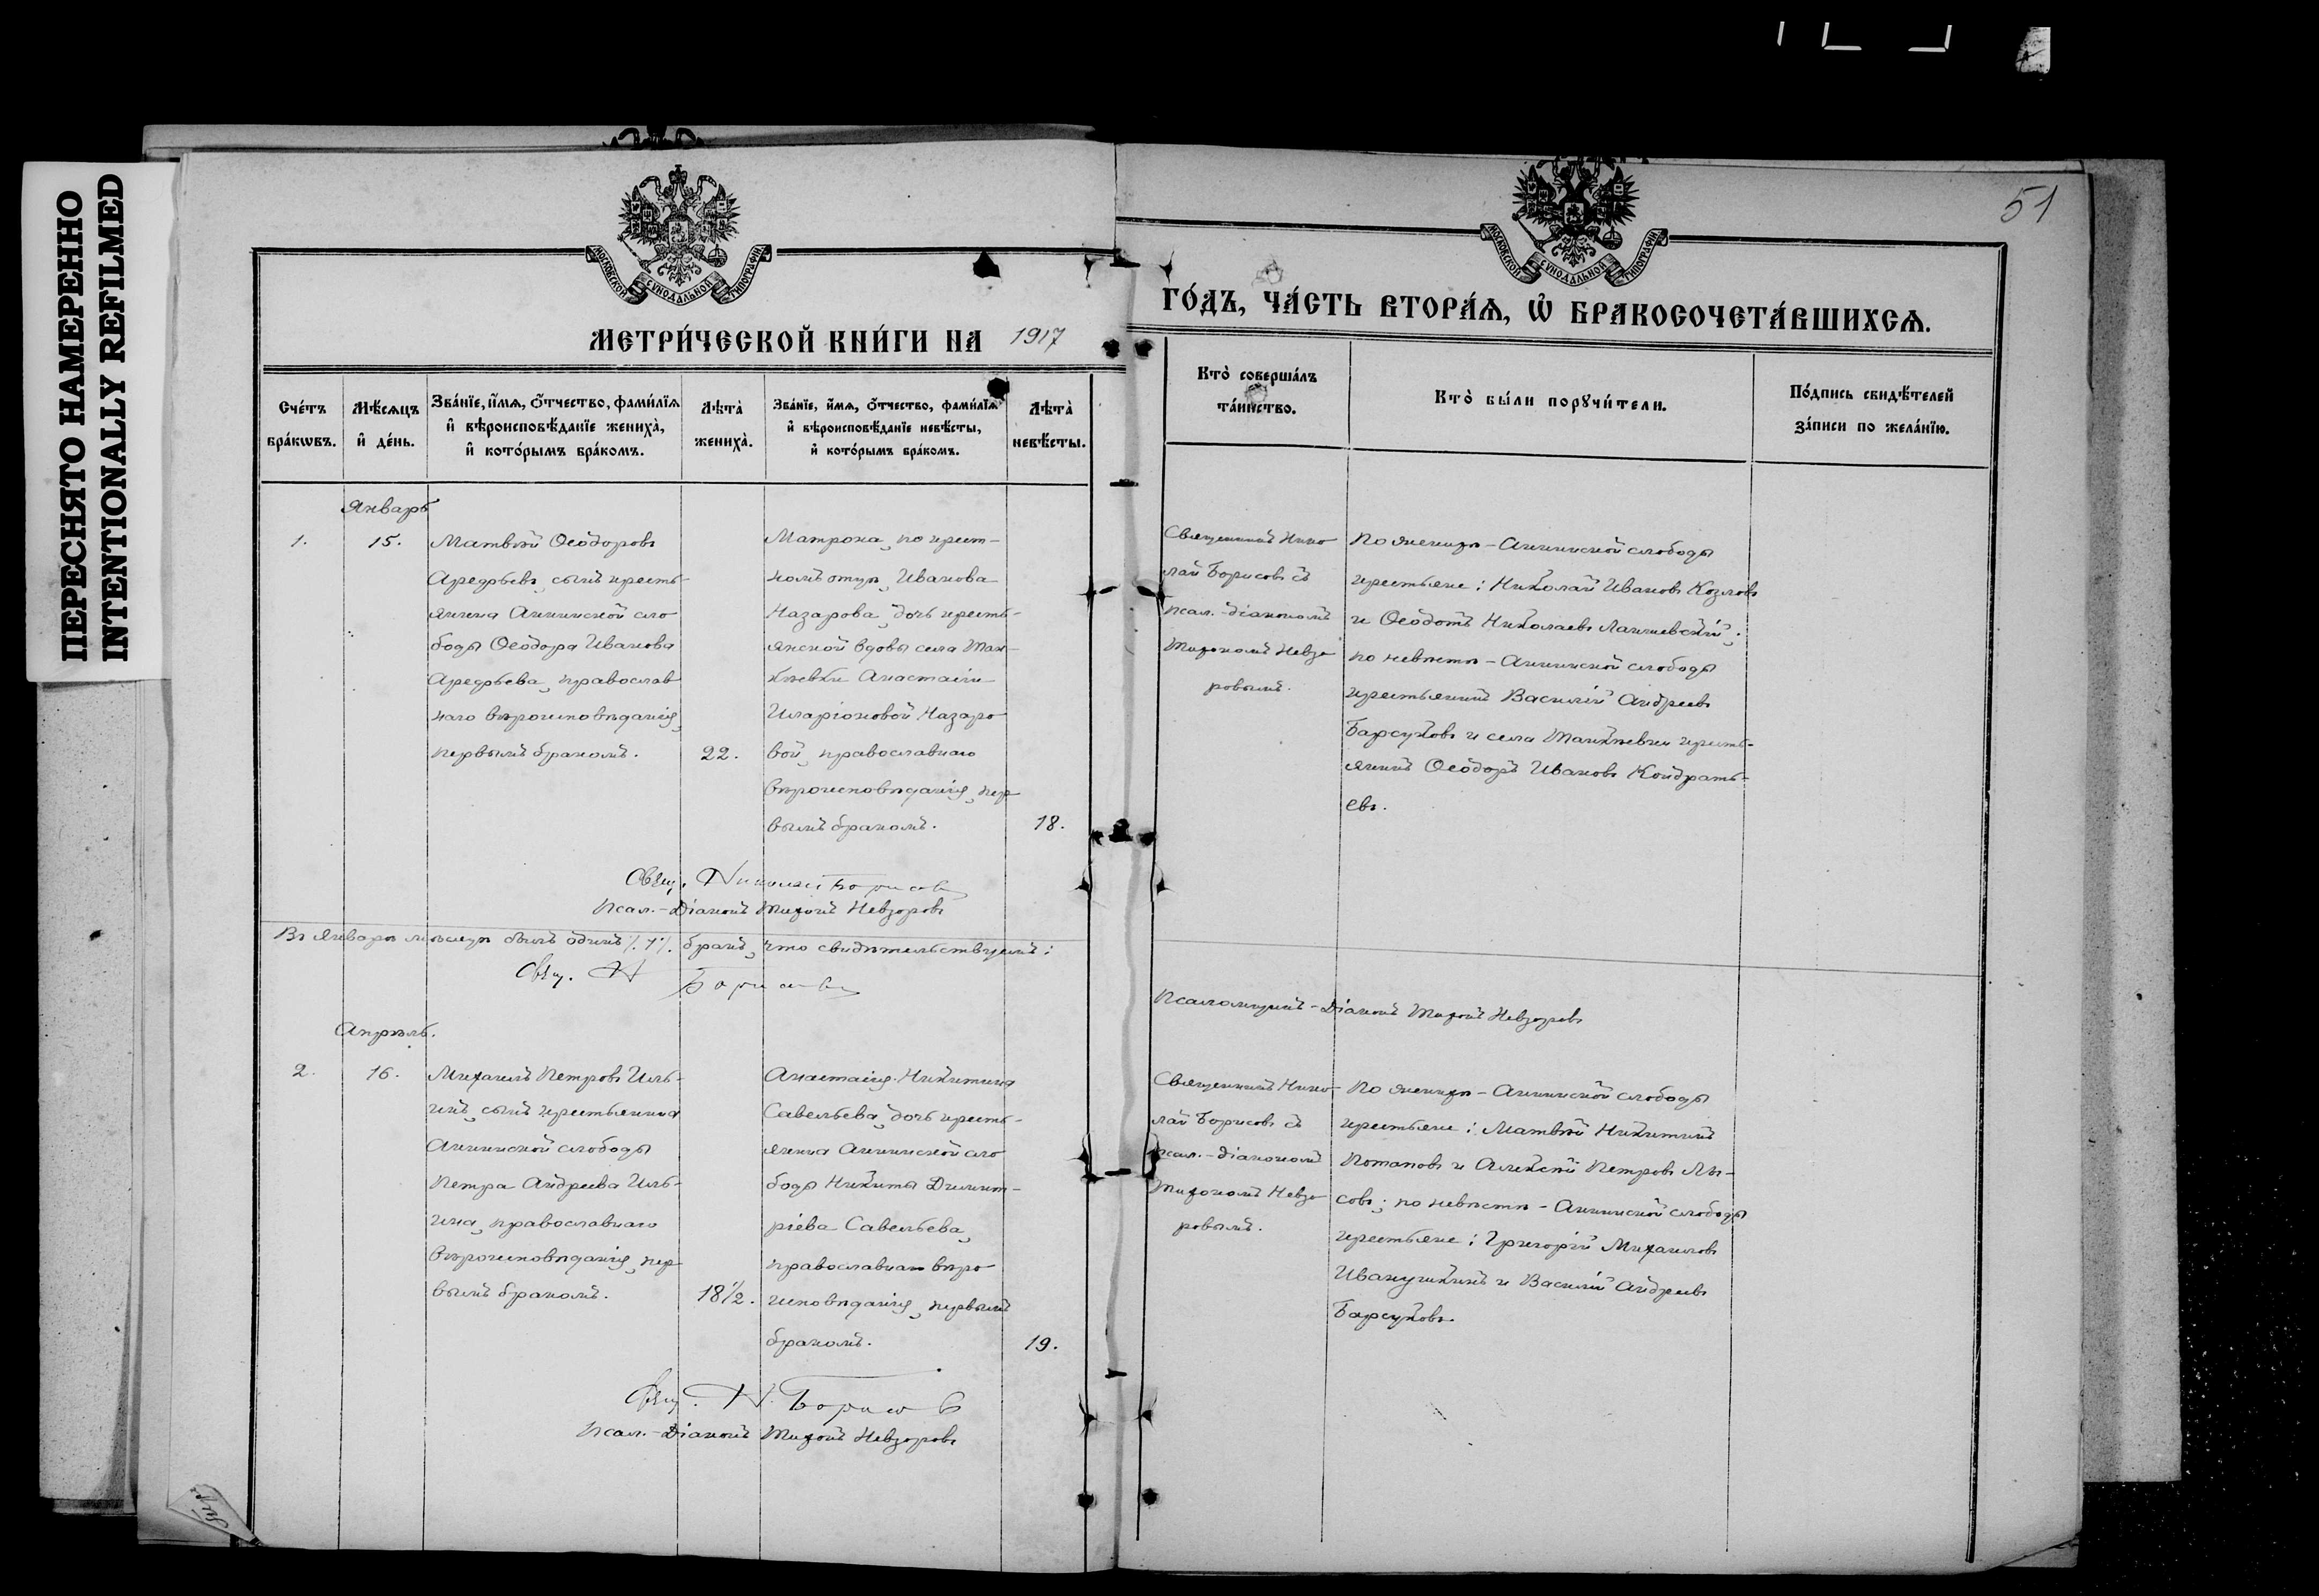 ПЕРЕСНЯТО НАМЕРЕННО
INTENTIONALLY REFILMED
51
МОСКОВСКОЙ СУНОДАЛЬНОЙ ТИПОГРАФІИ
МОСКОВСКОЙ СУНОДАЛЬНОЙ ТИПОГРАФІИ
МЕТРИ́ЧЕСКОЙ КНИ́ГИ НА 1917
ГО́ДЪ, ЧА́СТЬ ВТОРА́Ѧ, Ѽ БРАКОСОЧЕТА́ВШИХСѦ.
Сче́тъ
бра́кωвъ.
Мѣ́сѧцъ
и҆ де́нь.
Зва́нїе, и҆́мѧ, ѻ҆́тчество, фами́лїѧ
и҆ вѣроисповѣ́данїе жениха̀,
и҆ кото́рымъ бра́комъ.
Лѣта̀
жениха̀.
Зва́нїе, и҆́мѧ, ѻ҆́тчество, фами́лїѧ
и҆ вѣроисповѣ́данїе невѣ́сты,
и҆ кото́рымъ бра́комъ.
Лѣта̀
невѣ́сты.
Кто̀ соверша́лъ
та́инство.
Кто̀ бы́ли порꙋчи́тели.
По́дпись свидѣ́телей
за́писи по жела́нїю.
Январь
1.
15.
Матвѣй Ѳеодоровъ
Аредовевъ, сынъ кресть-
янина Аннинской сло
боды Ѳеодора Иванова
Аредовева, православ
наго вѣроисповѣданія,
первымъ бракомъ.
22.
Матрона, по крест-
ному отцу, Иванова
Назарова, дочь кресть-
янской вдовы села Тан-
кѣевки Анастасіи
Иларіоновой Назаро
вой, православнаго
вѣроисповѣданія, пер
вымъ бракомъ.
18.
Священникъ Нико
лай Борисовъ съ
псал.-діакономъ
Тихономъ Невзо
ровымъ.
По женихѣ - Аннинской слободы
крестьяне: Николай Ивановъ Козловъ
и Ѳеодотъ Николаевъ Лаишевскій;
по невѣстѣ - Аннинской слободы
крестьянинъ Василій Андреевъ
Барсуковъ и села Танкѣевки кресть-
янинъ Ѳеодоръ Ивановъ Кондрать-
евъ.
Свящ. Николай Борисовъ
Псал.-Діаконъ Тихонъ Невзоровъ
Въ Январѣ мѣсяцѣ былъ одинъ /.1/. бракъ, что свидѣтельствуемъ:
Свящ. Н Борисовъ
Псаломщикъ - Діаконъ Тихонъ Невзоровъ
Апрѣль.
2.
16.
Михаилъ Петровъ Иль-
инъ, сынъ крестьянина
Аннинской слободы
Петра Андреева Иль-
ина, православнаго
вѣроисповѣданія, пер
вымъ бракомъ.
18 1/2.
Анастасія Никитина
Савельева, дочь кресть-
янина Аннинской сло
боды Никиты Димит-
ріева Савельева,
православнаго вѣро
исповѣданія, первымъ
бракомъ.
19.
Священникъ Нико
лай Борисовъ съ
псал.-діакономъ
Тихономъ Невзо
ровымъ.
По женихѣ - Аннинской слободы
крестьяне: Матвѣй Никитинъ
Потаповъ и Алексѣй Петровъ Лы-
совъ; по невѣстѣ - Аннинской слободы
крестьяне: Григорій Михаиловъ
Иванушкинъ и Василій Андреевъ
Барсуковъ.
Свящ. Н. Борисов
Псал.-Діаконъ Тихонъ Невзоровъ